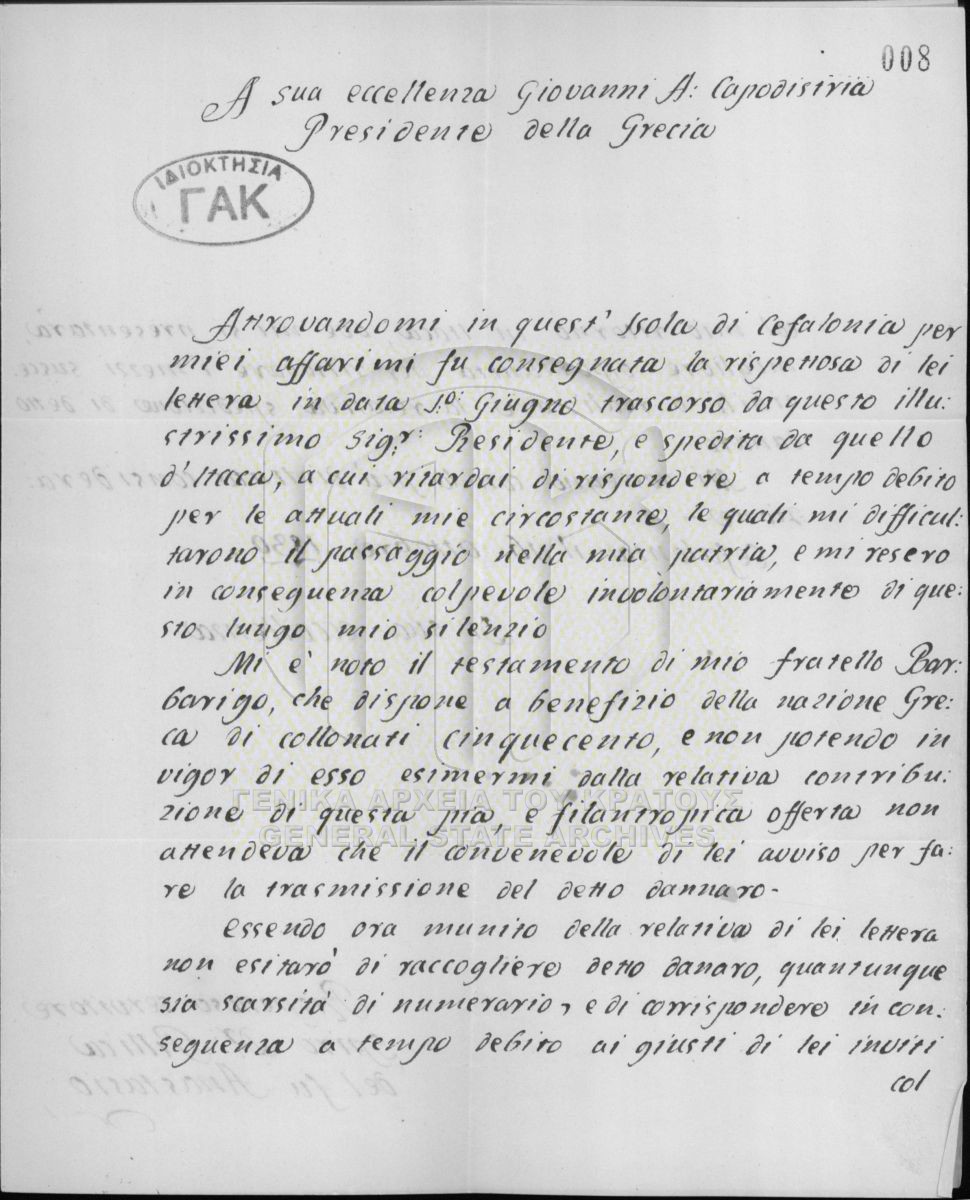 008
A sua eccellenza Giovanni A: Capodistria
Presidente della Grecia
ΙΔΙΟΚΤΗΣΙΑ
ΓΑΚ
Attrovandomi in quest' Isola di Cefalonia per
miei affari mi fu consegnata la rispettosa di lei
lettera in data 1º: Giugno trascorso da questo illu:
strissimo Sigr: Residente, e spedita da quello
d'Itaca, a cui ritardai di rispondere a tempo debito
per le attuali mie circostanze, le quali mi difficul:
tarono il passaggio nella mia patria, e mi resero
in conseguenza colpevole involontariamente di que:
sto lungo mio silenzio
Mi è noto il testamento di mio fratello Bar:
barigo, che dispone a benefizio della nazione Gre:
ca di collonati cinquecento, e non potendo in
vigor di esso esimermi dalla relativa contribu:
zione di questa pia, e filantropica offerta non
attendeva che il convenevole di lei avviso per fa:
re la trasmissione del detto dannaro -
Essendo ora munito della relativa di lei lettera
non esitarò di raccogliere detto danaro, quantunque
sia scarsità di numerario, e di corrispondere in con:
seguenza a tempo debito ai giusti di lei inviti
col
ΓΕΝΙΚΑ ΑΡΧΕΙΑ ΤΟΥ ΚΡΑΤΟΥΣ
GENERAL STATE ARCHIVES